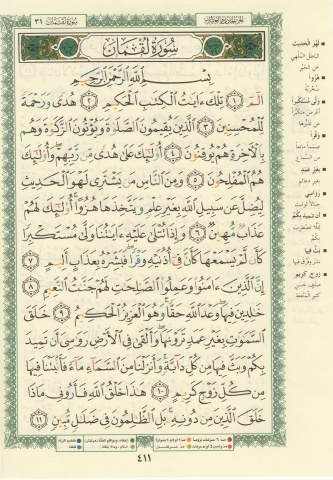 سُورَةُ لُقْمَانَ
الجزء الحادي والعشرون
٣١
سُورَةُ لُقْمَانَ
بِسْمِ اللَّهِ الرَّحْمَٰنِ الرَّحِيمِ
الٓمٓ ١ تِلْكَ ءَايَٰتُ ٱلْكِتَٰبِ ٱلْحَكِيمِ ٢ هُدًى وَرَحْمَةً
لِّلْمُحْسِنِينَ ٣ ٱلَّذِينَ يُقِيمُونَ ٱلصَّلَوٰةَ وَيُؤْتُونَ ٱلزَّكَوٰةَ وَهُم
بِٱلْءَاخِرَةِ هُمْ يُوقِنُونَ ٤ أُو۟لَٰٓئِكَ عَلَىٰ هُدًى مِّن رَّبِّهِمْ وَأُو۟لَٰٓئِكَ
هُمُ ٱلْمُفْلِحُونَ ٥ وَمِنَ ٱلنَّاسِ مَن يَشْتَرِى لَهْوَ ٱلْحَدِيثِ
لِيُضِلَّ عَن سَبِيلِ ٱللَّهِ بِغَيْرِ عِلْمٍ وَيَتَّخِذَهَا هُزُوًا أُو۟لَٰٓئِكَ لَهُمْ
عَذَابٌ مُّهِينٌ ٦ وَإِذَا تُتْلَىٰ عَلَيْهِ ءَايَٰتُنَا وَلَّىٰ مُسْتَكْبِرًا
كَأَن لَّمْ يَسْمَعْهَا كَأَنَّ فِىٓ أُذُنَيْهِ وَقْرًا فَبَشِّرْهُ بِعَذَابٍ أَلِيمٍ ٧
إِنَّ ٱلَّذِينَ ءَامَنُوا۟ وَعَمِلُوا۟ ٱلصَّٰلِحَٰتِ لَهُمْ جَنَّٰتُ ٱلنَّعِيمِ ٨
خَٰلِدِينَ فِيهَا وَعْدَ ٱللَّهِ حَقًّا وَهُوَ ٱلْعَزِيزُ ٱلْحَكِيمُ ٩ خَلَقَ
ٱلسَّمَٰوَٰتِ بِغَيْرِ عَمَدٍ تَرَوْنَهَا وَأَلْقَىٰ فِى ٱلْأَرْضِ رَوَٰسِىَ أَن تَمِيدَ
بِكُمْ وَبَثَّ فِيهَا مِن كُلِّ دَآبَّةٍ وَأَنزَلْنَا مِنَ ٱلسَّمَآءِ مَآءً فَأَنۢبَتْنَا فِيهَا
مِن كُلِّ زَوْجٍ كَرِيمٍ ١٠ هَٰذَا خَلْقُ ٱللَّهِ فَأَرُونِى مَاذَا
خَلَقَ ٱلَّذِينَ مِن دُونِهِۦ بَلِ ٱلظَّٰلِمُونَ فِى ضَلَٰلٍ مُّبِينٍ ١١
لهو الحديث
هُزُوًا
ولى مستكبرا
وقرًا
بغير عمد
رواسي
أن تميد بكم
بث فيها
زوج كريم
٤١١